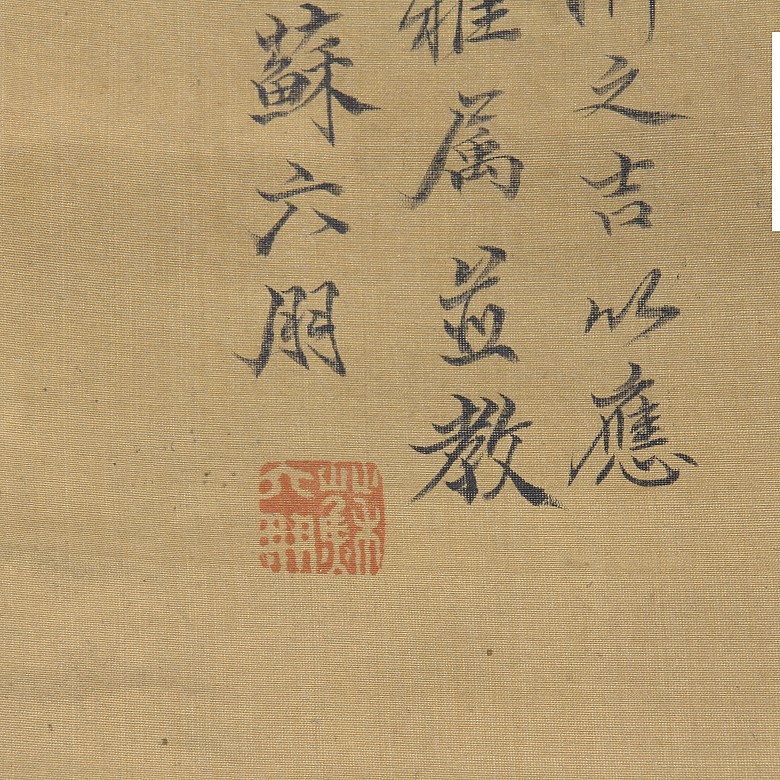 之吉以應
雅属並教
蘇六朋
蘇六朋